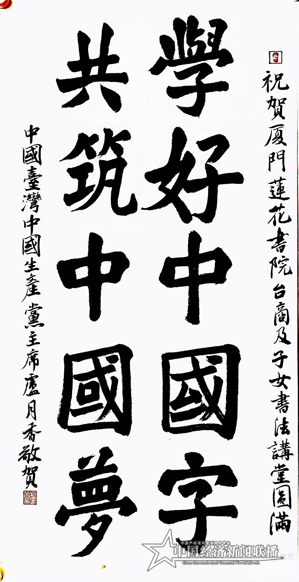 祝贺厦门蓮花書院台商及子女書法講堂圆滿
學好中國字
共筑中國夢
中國臺灣中國生產黨主席盧月香敬賀
中国经济新闻联播